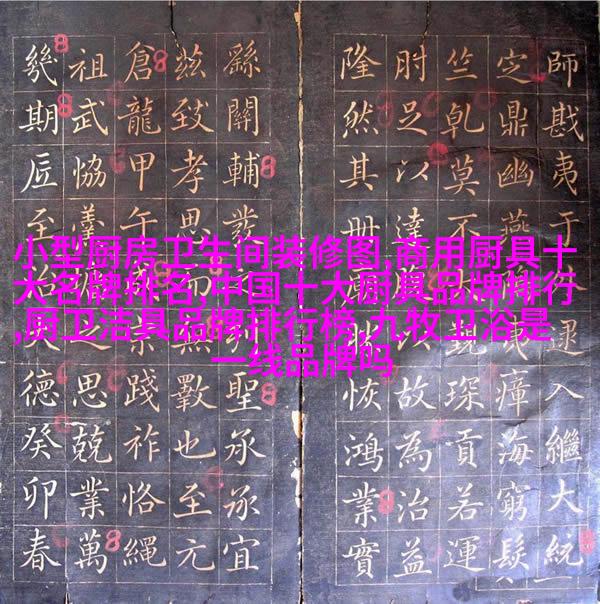 小型厨房卫生间装修图,商用厨具十
大名牌排名,中国十大厨具品牌排行
,厨卫洁具品牌排行榜,九牧卫浴是
一线品牌吗
師戡夷于逮入繼大統
定鼎幽燕瘴海窮髮
竺乹莫不琛貢若運
肘足以達以故為治益
隆然其冊恢鴻業實
繇關輔發聖承承宜
茲致孝思而無斁也至元
倉龍甲午踐祚恪繩
祖武協之思兢業萬
幾期臣至治德癸卯春